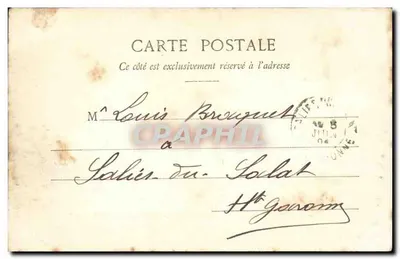 CARTE POSTALE
Ce côté est exclusivement réservé à l'adresse
Mr Louis Brouquet
à
Salies-du-Salat
Hte Garonne
CPAPHIL